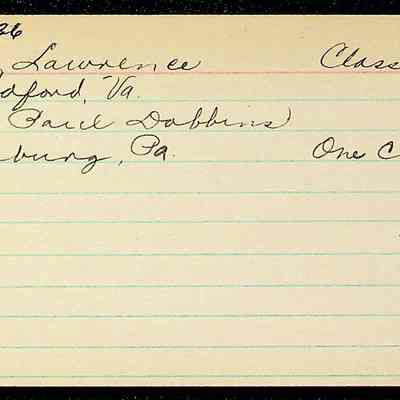 26
, Lawrence Class
dford, Va.
Paul Dobbins)
burg, Pa. One C